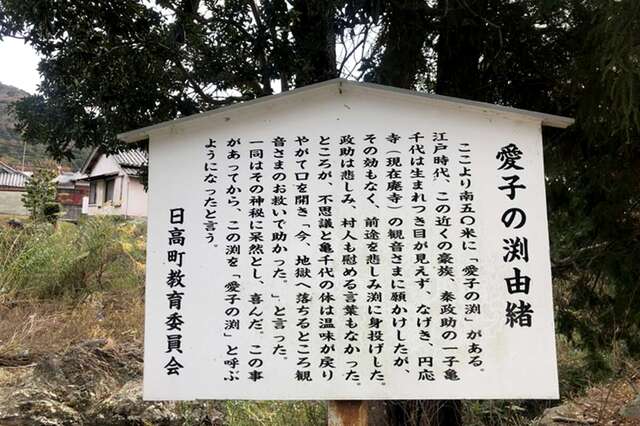 愛子の渕由緒
ここより南五〇米に「愛子の渕」がある。
江戸時代、この近くの豪族、秦政助の一子亀
千代は生まれつき目が見えず、なげき、円応
寺（現在廃寺）の観音さまに願かけしたが、
その効もなく、前途を悲しみ渕に身投げした。
政助は悲しみ、村人も慰める言葉もなかった。
ところが、不思議と亀千代の体は温味が戻り
やがて口を開き「今、地獄へ落ちるところ観
音さまのお救いで助かった。」と言った。
一同はその神秘に呆然とし、喜んだ。この事
があってから、この渕を「愛子の渕」と呼ぶ
ようになったと言う。
日高町教育委員会